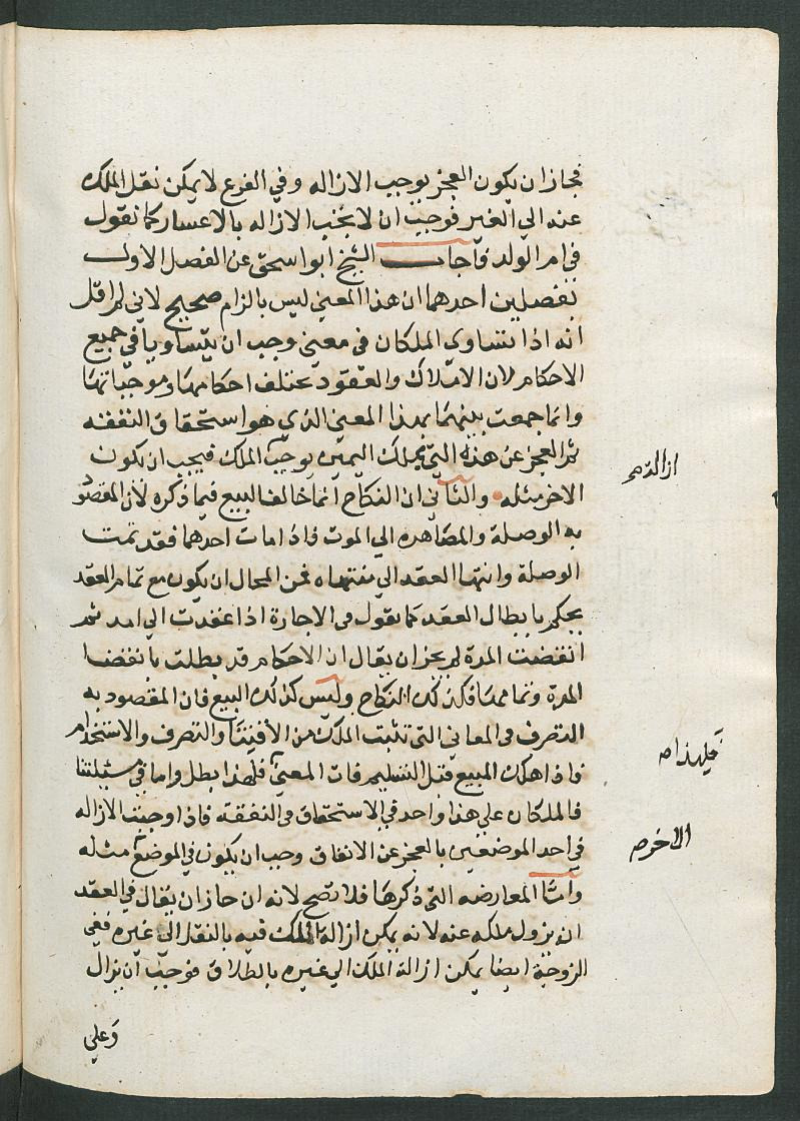 فجاز ان يكون العجز يوجب الازاله وفي الفرع لا يمكن نقل الملك
عنه الي الغير فوجب ان لا تجب الازاله بالاعسار كما نقول
في ام الولد فاجاب الشيخ ابو اسحق عن الفصل الاول
بفصلين احدهما ان هذا المعني ليس بالزام صحيح لاني لم اقل
انه اذا تساوي الملكان في معني وجب ان يتساويا في جميع
الاحكام لان الاملاك والعقود تختلف احكامها وموجباتها
وانما جمعت بينهما بهذا المعني الذي هو استحقاق النفقه
ثم العجز عن هذه التي بملك اليمين يوجب الملك فيجب ان يكون
الاخر مثله والثاني ان النكاح انما خالف البيع فيما ذكره لان المقصود
به الوصلة والمصاهره الي الموت فاذا مات احدهما فقد تمت
الوصلة وانتها العقد الي منتهاه فمن المحال ان يكون مع تمام العقد
يحكم بابطال العقد كما يقول في الاجارة اذا عقدت الي امد ثم
انقضت المدة لم يجز ان يقال ان الاحكام قد بطلت بانقضا
المدة وتمامها فكذلك النكاح وليس كذلك البيع فان المقصود به
التصرف في المعاني التي تثبت الملك من الاقتنا والتصرف والاستخدام
فاذا هلك المبيع قبل التسليم فات المعني فلهذا بطل واما في مسئلتنا
فالملكان علي هذا واحد في الاستحقاق في النفقه فاذا وجبت الازاله
في احد الموضعين بالعجز عن الانفاق وجب ان يكون في الموضع مثله
وامتا المعارضه التي ذكرها فلا تصح لانه ان جاز ان يقال في العقد
ان يزول ملكه عنه لانه يمكن ازالة الملك فيه بالنقل الي غيره ففي
الزوجية ايضا يمكن ازالة الملك الي غيره بالطلاق فوجب ان يزال
وعلي
ازالة صح
الاخر صح